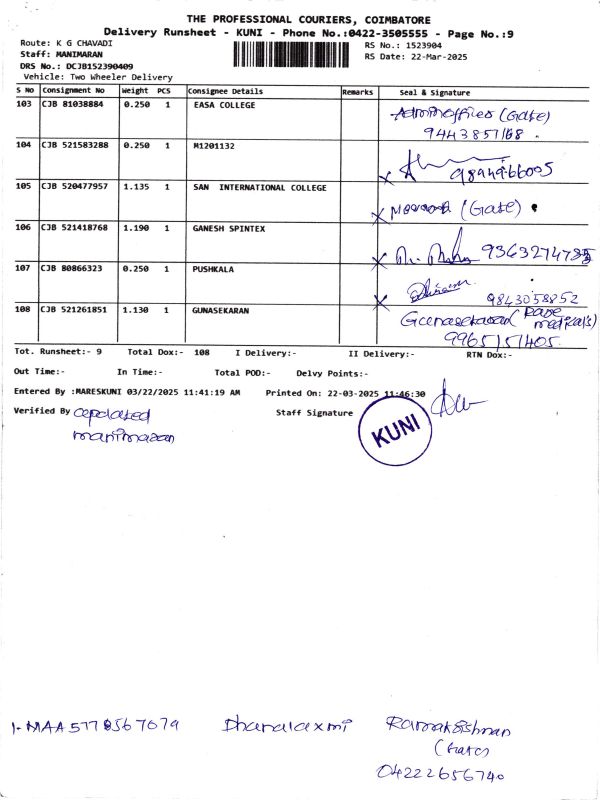 THE PROFESSIONAL COURIERS, COIMBATORE
Delivery Runsheet - KUNI - Phone No.:0422-3505555 - Page No.:9
Route: K G CHAVADI
Staff: MANIMARAN
DRS No.: DCJB152390409
Vehicle: Two Wheeler Delivery
RS No.: 1523904
RS Date: 22-Mar-2025
S No Consignment No Weight PCS Consignee Details Remarks Seal & Signature
103 CJB 81038884 0.250 1 EASA COLLEGE
(Gate)
9443857168.
104 CJB 521583288 0.250 1 M1201132
105 CJB 520477957 1.135 1 SAN INTERNATIONAL COLLEGE
(Gate)
106 CJB 521418768 1.190 1 GANESH SPINTEX
107 CJB 80866323 0.250 1 PUSHKALA
9843058852
108 CJB 521261851 1.130 1 GUNASEKARAN
Gunasekaran (
medicals)
9965151405.
Tot. Runsheet:- 9 Total Dox:- 108 I Delivery:- II Delivery:- RTN Dox:-
Out Time:- In Time:- Total POD:- Delvy Points:-
Entered By :MARESKUNI 03/22/2025 11:41:19 AM Printed On: 22-03-2025 11:46:30
Verified By updated
manimaran
Staff Signature
KUNI
1. MAA 5778567679 Dhanalaxmi Ramakrishnan
(Gate)
04222656740